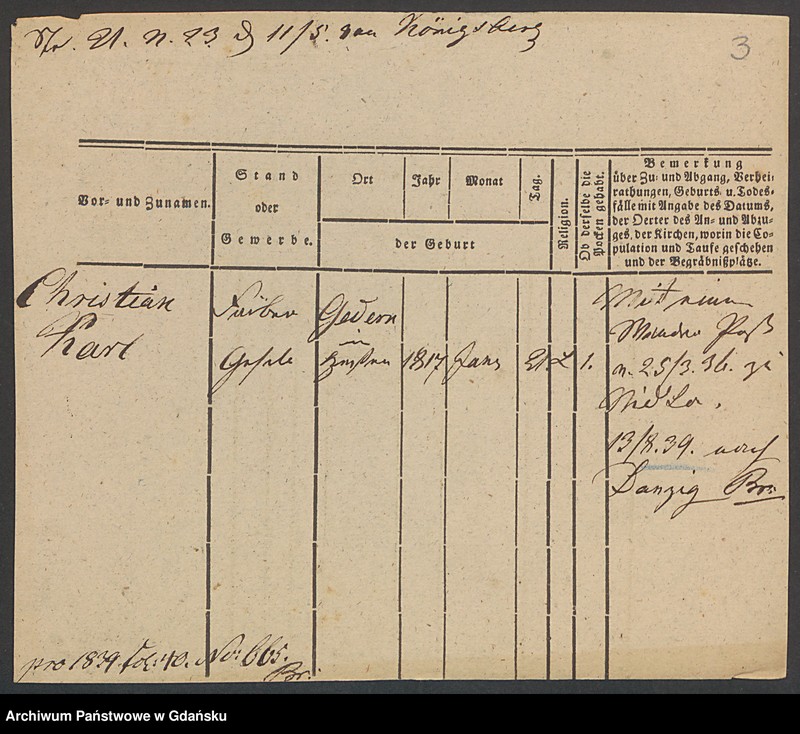 21. N. 23 11/5. von Königsberg
3
Vor- und Zunamen.
Stand
oder
Gewerbe.
Ort
Jahr
Monat
Tag.
der Geburt
Religion.
Ob derselbe die
Pocken gehabt.
Bemerkung
über Zu- und Abgang, Verhei-
rathungen, Geburts- u. Todes-
fälle mit Angabe des Datums,
der Oerter des An- und Abzu-
ges, der Kirchen, worin die Co-
pulation und Taufe geschehen
und der Begräbnißplätze.
Christian
Karl
Färber
Gesele
Gedern
in
Hessen
1817
Janr
21
L
1.
Mit einem
Wander Paß
v. 25/3. 36. zu
Nidda.
13/8. 39. nach
Danzig Br.
pro 1839. Fol: 40. No: 665.
Br.
Archiwum Państwowe w Gdańsku